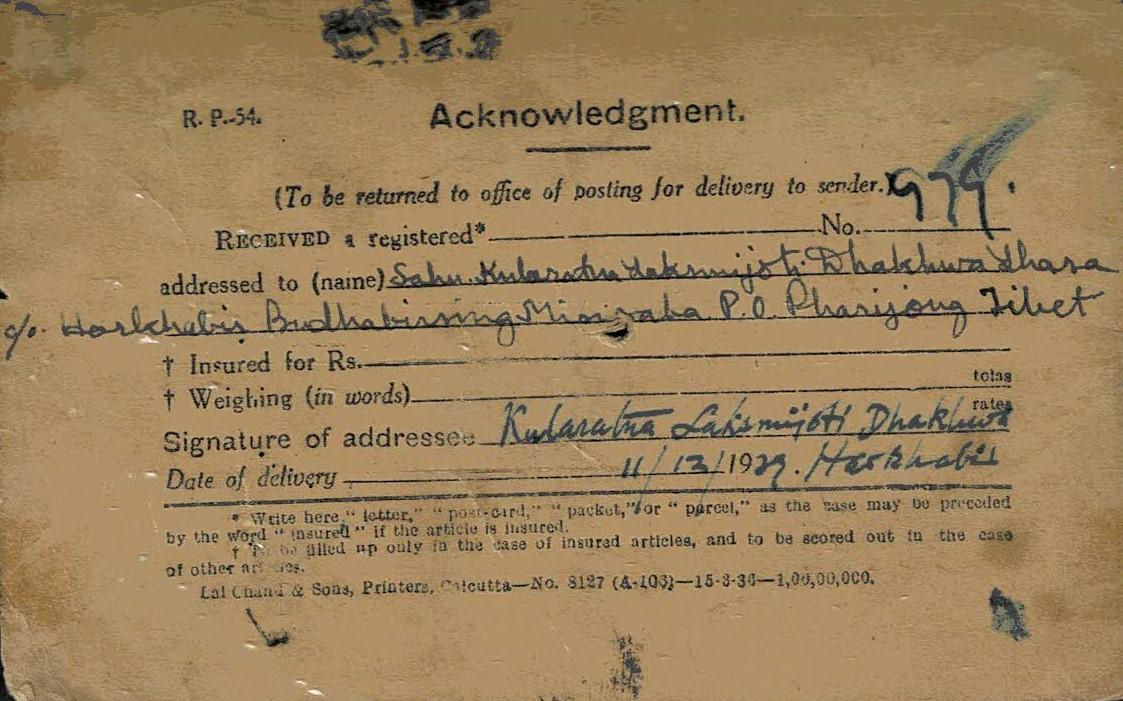 R. P.-54.
Acknowledgment.
(To be returned to office of posting for delivery to sender.)
RECEIVED a registered* No. 979.
addressed to (name) Sahu Kularatna Laksmijoti Dhakhwa Lhasa
c/o. Harkhabir Budhabirsing P.O. Pharijong Tibet
† Insured for Rs.
† Weighing (in words) tolas
rates
Signature of addressee Kularatna Laksmijoti Dhakhwa
Date of delivery 11/12/1939. Harkhabir
* Write here, "letter," "post-card," "packet," or "parcel," as the case may be preceded
by the word "insured" if the article is insured.
† To be filled up only in the case of insured articles, and to be scored out in the case
of other articles.
Lal Chand & Sons, Printers, Calcutta—No. 8127 (A-106)—15-3-36—1,00,00,000.